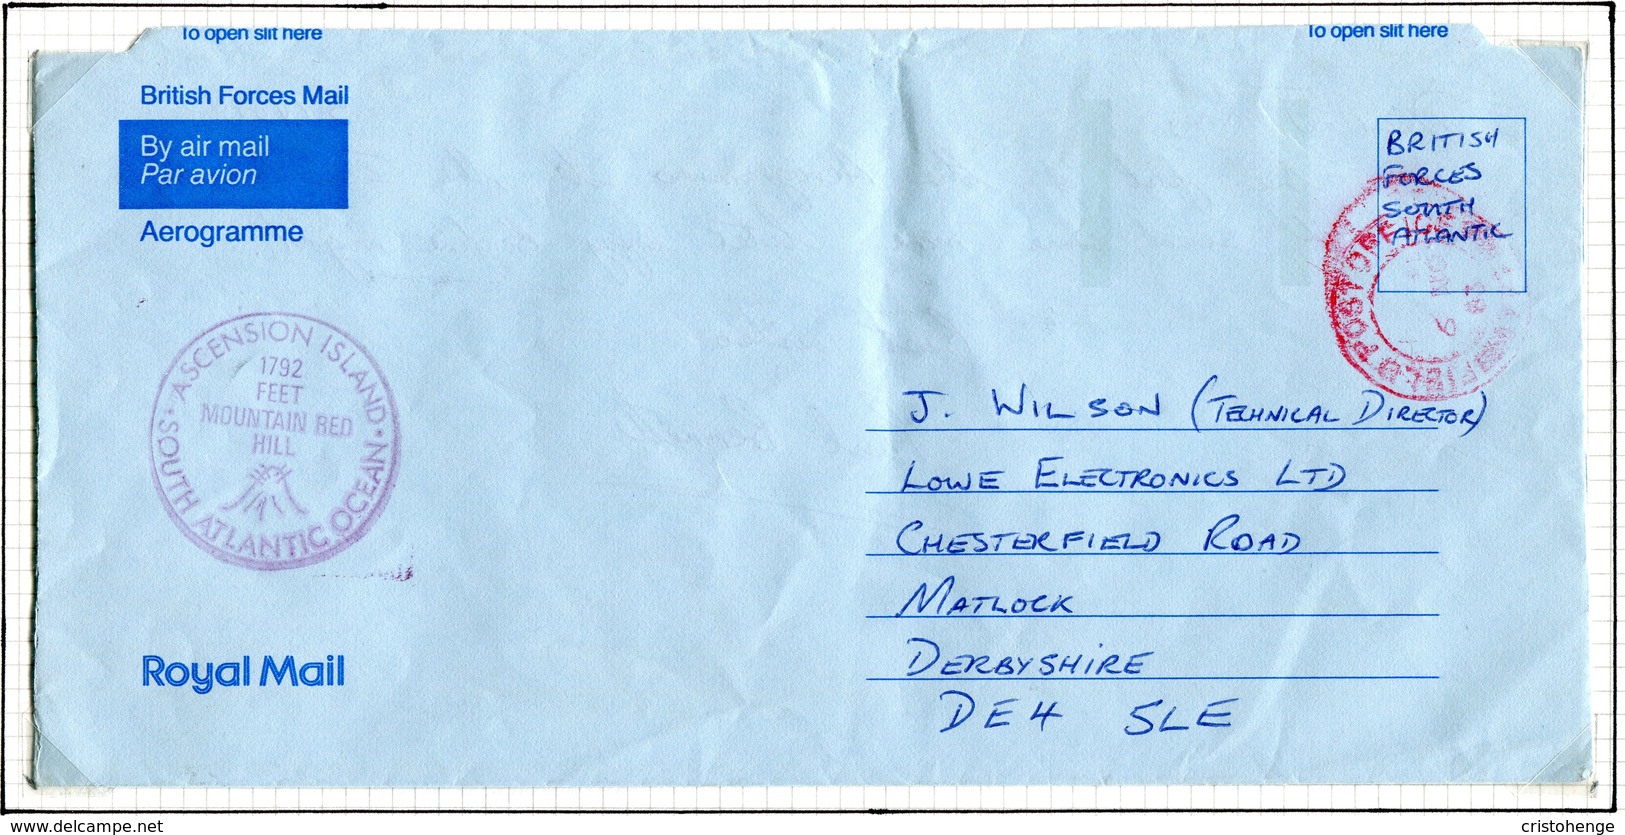 To open slit here
To open slit here
British Forces Mail
By air mail
Par avion
Aerogramme
BRITISH
FORCES
SOUTH
ATLANTIC
FIELD POST OFFICE
ASCENSION ISLAND
1792
FEET
MOUNTAIN RED
HILL
SOUTH ATLANTIC OCEAN
J. WILSON (TECHNICAL DIRECTOR)
LOWE ELECTRONICS LTD
CHESTERFIELD ROAD
MATLOCK
DERBYSHIRE
DE4 5LE
Royal Mail
www.delcampe.net
cristohenge